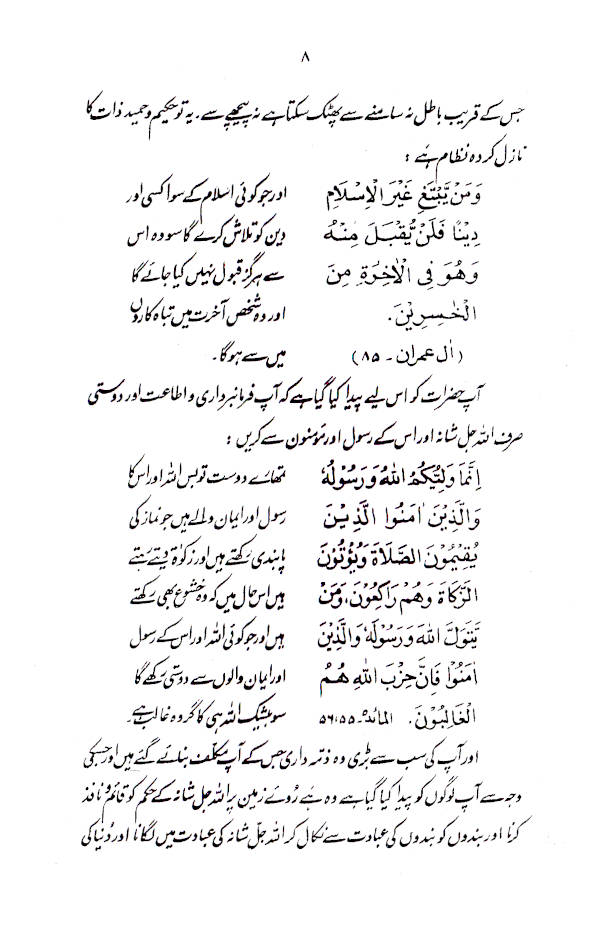 ۸
جس کے قریب باطل نہ سامنے سے پھٹک سکتا ہے نہ پیچھے سے۔ یہ تو حکیم و حمید ذات کا
نازل کردہ نظام ہے :
وَمَنْ يَّبْتَغِ غَيْرَ الْاِسْلَامِ
دِيْنًا فَلَنْ يُّقْبَلَ مِنْهُ
وَهُوَ فِي الْاٰخِرَةِ مِنَ
الْخٰسِرِيْنَ.
(اٰل عمران۔ ۸۵)
اور جو کوئی اسلام کے سوا کسی اور
دین کو تلاش کرے گا سو وہ اس
سے ہرگز قبول نہیں کیا جائے گا
اور وہ شخص آخرت میں تباہ کاروں
میں سے ہوگا۔
آپ حضرات کو اس لیے پیدا کیا گیا ہے کہ آپ فرمانبرداری و اطاعت اور دوستی
صرف اللہ جل شانہ اور اس کے رسول اور مؤمنون سے کریں :
اِنَّمَا وَلِيُّكُمُ اللّٰهُ وَرَسُوْلُهٗ
وَالَّذِيْنَ اٰمَنُوا الَّذِيْنَ
يُقِيْمُوْنَ الصَّلَاةَ وَيُؤْتُوْنَ
الزَّكَاةَ وَهُمْ رَاكِعُوْنَ، وَمَنْ
يَّتَوَلَّ اللّٰهَ وَرَسُوْلَهٗ وَالَّذِيْنَ
اٰمَنُوْا فَاِنَّ حِزْبَ اللّٰهِ هُمُ
الْغَالِبُوْنَ. المائدہ ۵۵،۵۶
تمھارے دوست تو بس اللہ اور اس کا
رسول اور ایمان والے ہیں جو نماز کی
پابندی رکھتے ہیں اور زکوٰۃ دیتے رہتے
ہیں اس حال میں کہ وہ خشوع بھی رکھتے
ہیں اور جو کوئی اللہ اور اس کے رسول
اور ایمان والوں سے دوستی رکھے گا
سو بیشک اللہ ہی کا گروہ غالب ہے۔
اور آپ کی سب سے بڑی وہ ذمہ داری جس کے آپ مکلف بنائے گئے ہیں اور جسکی
وجہ سے آپ لوگوں کو پیدا کیا گیا ہے وہ ہے رُوئے زمین پر اللہ جل شانہ کے حکم کو قائم و نافذ
کرنا اور بندوں کو بندوں کی عبادت سے نکال کر اللہ جلّ شانہ کی عبادت میں لگانا اور دُنیا کی